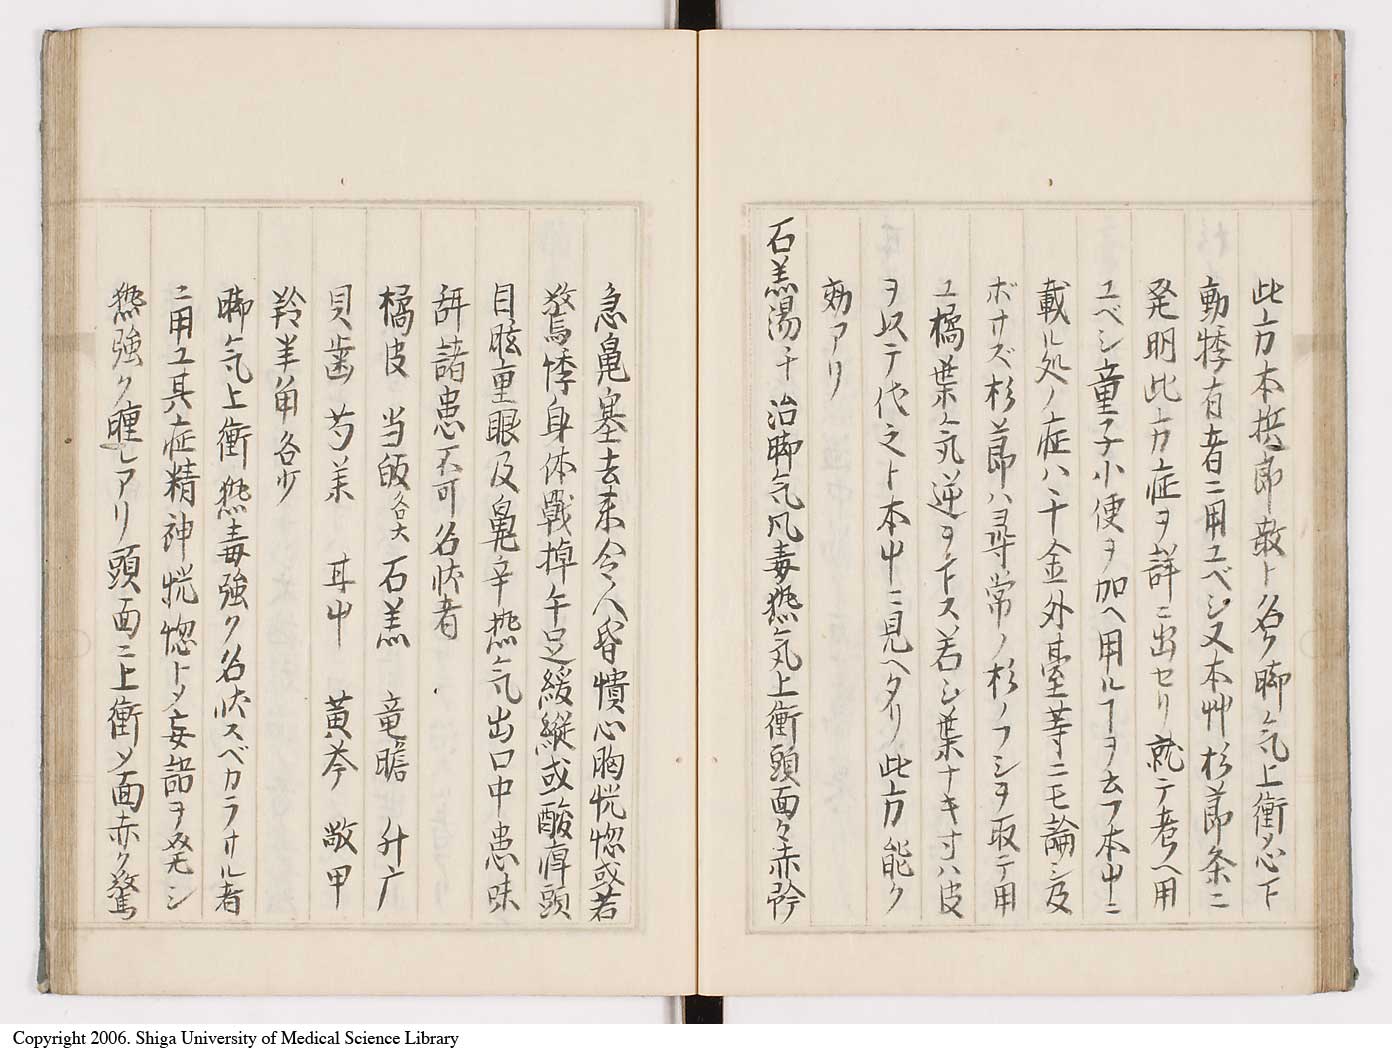 此方本㯽郎散ト名ク脚气上衝〆心下
動悸有者ニ用ユベシ又本艸杉節条ニ
発明此方症ヲ詳ニ出セリ就テ考ヘ用
ユベシ童子小便ヲ加ヘ用ルヿヲ去フ本中ニ
載ル処ノ症ハ千金外臺等ニモ論シ及
ボサズ杉節ハ尋常ノ杉ノフシヲ取テ用
ユ橘葉气逆ヲ下ス若シ葉ナキ寸ハ皮
ヲ以テ代之ト本中ニ見ヘタリ此方能ク
効アリ
石羔湯千 治脚气风毒𤍠气上衝頭面々赤矜
急鼻塞去来令人昏憒心胸恍惚或若
驚悸身体戰掉手足緩縦或酸痺頭
目眩重眼及鼻辛𤍠气出口中患味
諸患不可名状者
橘皮 当皈各大 石羔 竜瞻 升广
貝歯 芍藥 耳中 黄芩 敝甲
羚羊角各少
脚气上衝𤍠毒強ク名状スベカラサル者
ニ用ユ其症精神恍惚ト〆妄語ヲ発シ
𤍠強ク瞳レアリ頭面ニ上衝〆面赤ク驚
Copyright 2006. Shiga University of Medical Science Library